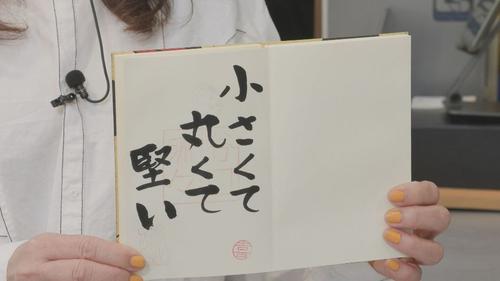 小さくて
丸くて
堅い